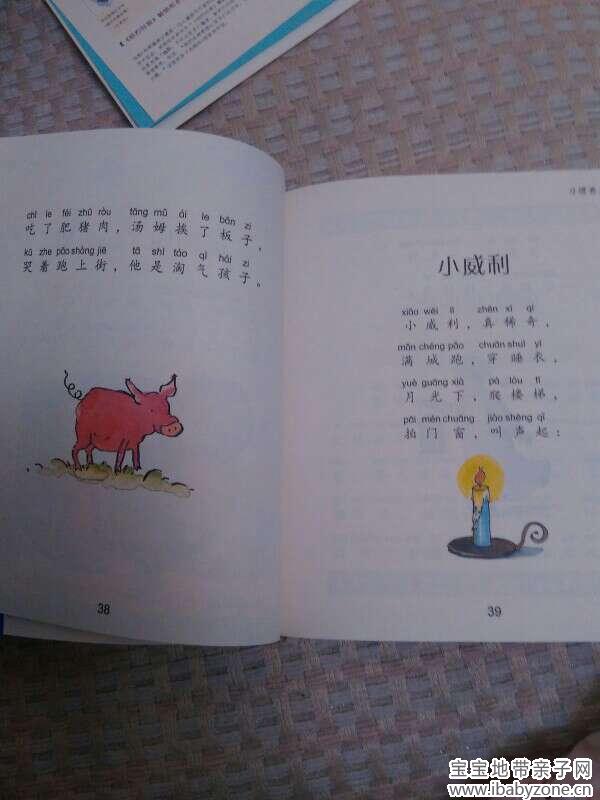 chī le féi zhū ròu tāng mǔ ái le bǎn zi
吃了肥猪肉，汤姆挨了板子，
kū zhe pǎo shàng jiē tā shì táo qì hái zi
哭着跑上街，他是淘气孩子。
38
小威利
xiǎo wēi lì zhēn xī qí
小威利，真稀奇，
mǎn chéng pǎo chuān shuì yī
满城跑，穿睡衣，
yuè guāng xià pá lóu tī
月光下，爬楼梯，
pāi mén chuāng jiào shēng qǐ
拍门窗，叫声起：
39
宝宝地带亲子网
www.ibabyzone.cn